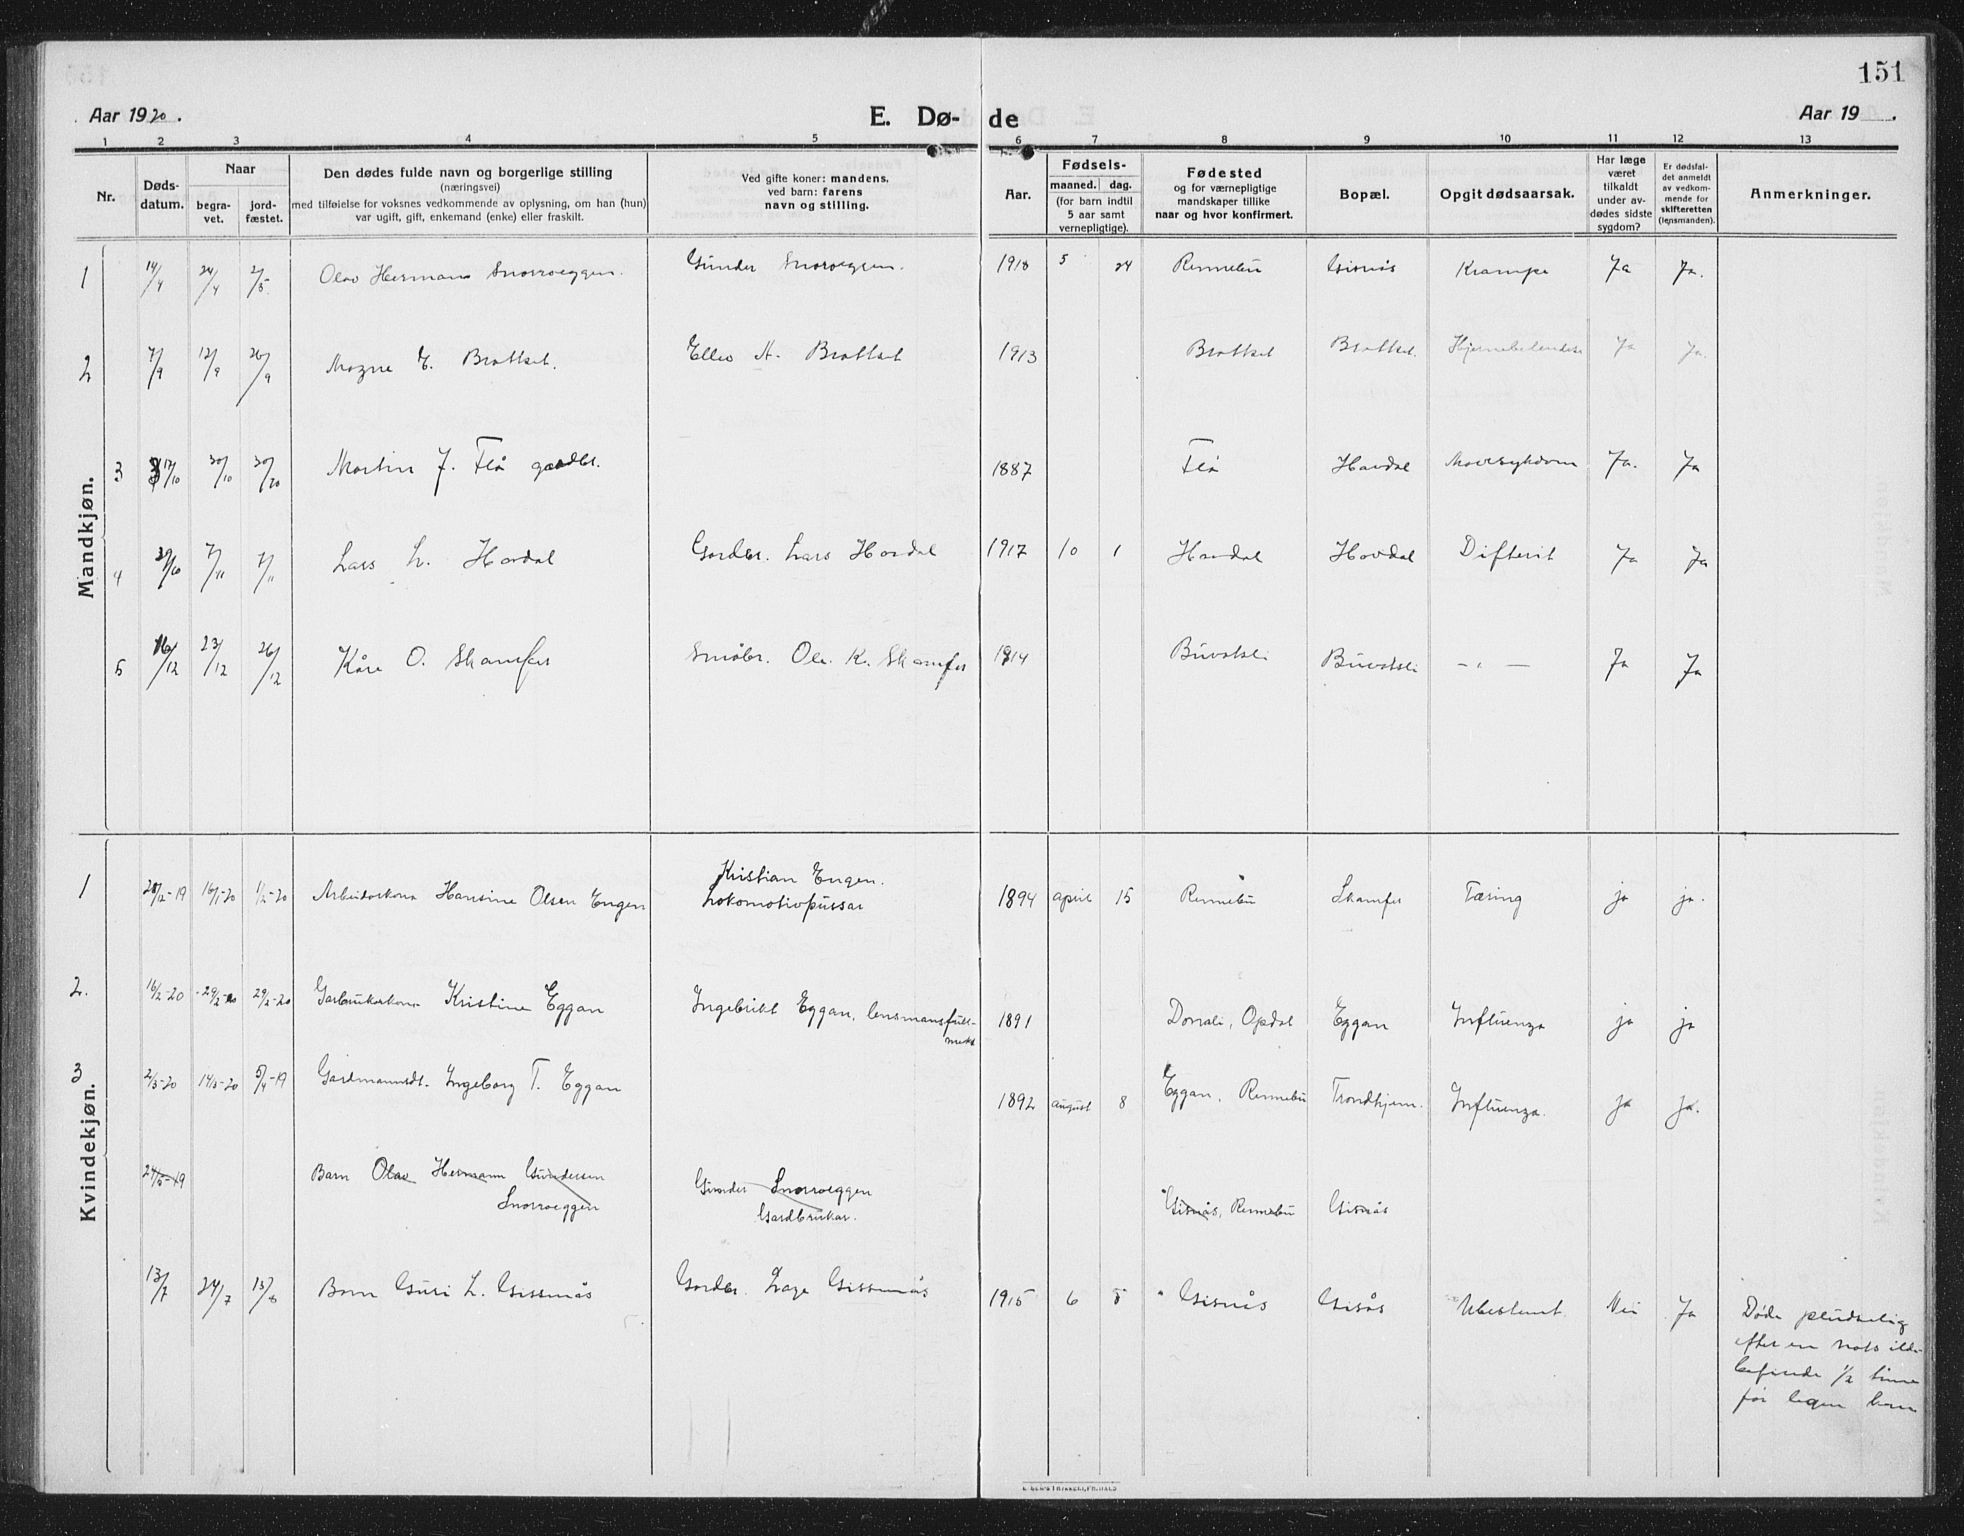 151
Aar 1920.
E. Dø-
de
Aar 19 .
1 2 3 4 5 6 7 8 9 10 11 12 13
Nr.
Døds-
datum.
Naar
begra-
vet.
jord-
fæstet.
Den dødes fulde navn og borgerlige stilling
(næringsvei)
med tilføielse for voksnes vedkommende av oplysning, om han (hun)
var ugift, gift, enkemand (enke) eller fraskilt.
Ved gifte koner: mandens,
ved barn: farens
navn og stilling.
Aar.
Fødsels-
maaned. dag.
(for barn indtil
5 aar samt
vernepligtige).
Fødested
og for værnepligtige
mandskaper tillike
naar og hvor konfirmert.
Bopæl.
Opgit dødsaarsak.
Har læge
været
tilkaldt
under av-
dødes sidste
sygdom?
Er dødsfal-
det anmeldt
av vedkom-
mende for
skifteretten
(lensmanden).
Anmerkninger.
Mandkjøn.
1 14/4 24/4 2/5 Olav Hermann Snorroeggen. Gunder Snoroeggen. 1918 5 24 Rennebu Gisnås Krampe Ja Ja.
2 7/9 12/9 26/9 Magne E. Brattset. Ellev A. Brattset 1913 Brattset Brattset. Ja Ja.
3 17/10 30/10 30/20 Martin J. Flå gardbr. 1887 Flå Havdal Mavesykdom Ja. Ja
4 30/10 7/11 7/11 Lars L. Havdal Gardbr. Lars Havdal 1917 10 1 Havdal Hovdal Difterit Ja Ja
5 16/12 23/12 26/12 Kåre O. Skamfer Småbr. Ole K. Skamfer 1914 Buvatsli Buvatsli - " - Ja Ja
Kvindekjøn.
1 /12-19 16/1-20 1/2-20 Arbeidarkona Hansine Olsen Engen Kristian Engen.
Lokomotivpussar 1894 april 15 Rennebu Skamfer Tæring ja ja.
2. 16/2-20 29/2-20 29/2-20 Garbrukarkona Kristine Eggan Ingebrikt Eggan, lensmansfull-
mekt 1891 Dorrali, Opdal Eggan Influenza ja ja
3 2/3-20 14/3-20 5/4-19 Gardmannsdt. Ingeborg T. Eggan 1892 august 8 Eggan, Rennebu Trondhjem. Influenza. ja ja.
24/5-19 Barn Olav Hermann Gundersen
Snorroeggen Gunder Snorroeggen
Gardbrukar. Gisnås, Rennebu Gisnås
13/7 24/7 15/8 Barn Guri L. Gissnås Gardbr. Lars Gissnås 1915 6 5 Gisnås Gisås Ubestemt. Nei Ja Døde pludselig
efter en nats ilde-
befinde 1/2 time
før legen kom